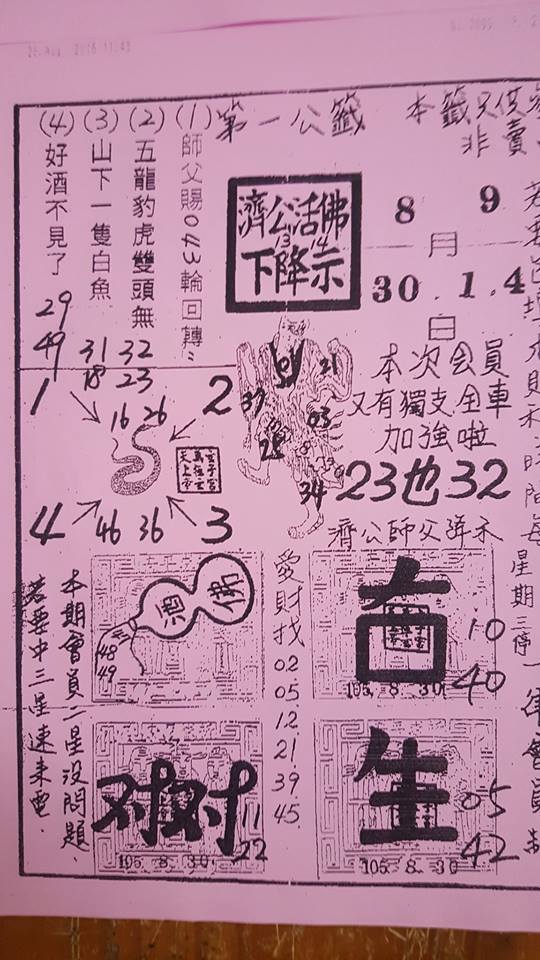 25.Aug 2016 11:43
第一公籤
本籤只供參
非賣
(1) 師父賜043輪回轉
(2) 五龍豹虎雙頭無
(3) 山下一隻白魚
(4) 好酒不見了
29
49
31 32
18 23
濟公活佛
13 14
下降示
8 9
月
30.1.4
日
本次会員
又有獨支全車
加強啦
23也32
1
2
16 26
4
46 36
3
21
37
03
28
34
濟公師父降示
愛財找
02.
05.
12.
21.
39.
45.
酒
佛
48
49
吉
10
40
105.8.30
对对
11
22
105.8.30
生
05
42
105.8.30
本期會員二星没問題、
若要中三星速來電.
星期三停